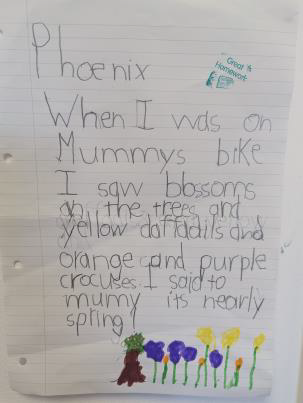 Phoenix
Great
Homework
When I was on
Mummys bike
I saw blossoms
on the trees and
yellow daffadils and
orange and purple
crocuses. I said to
mumy its nearly
spring!